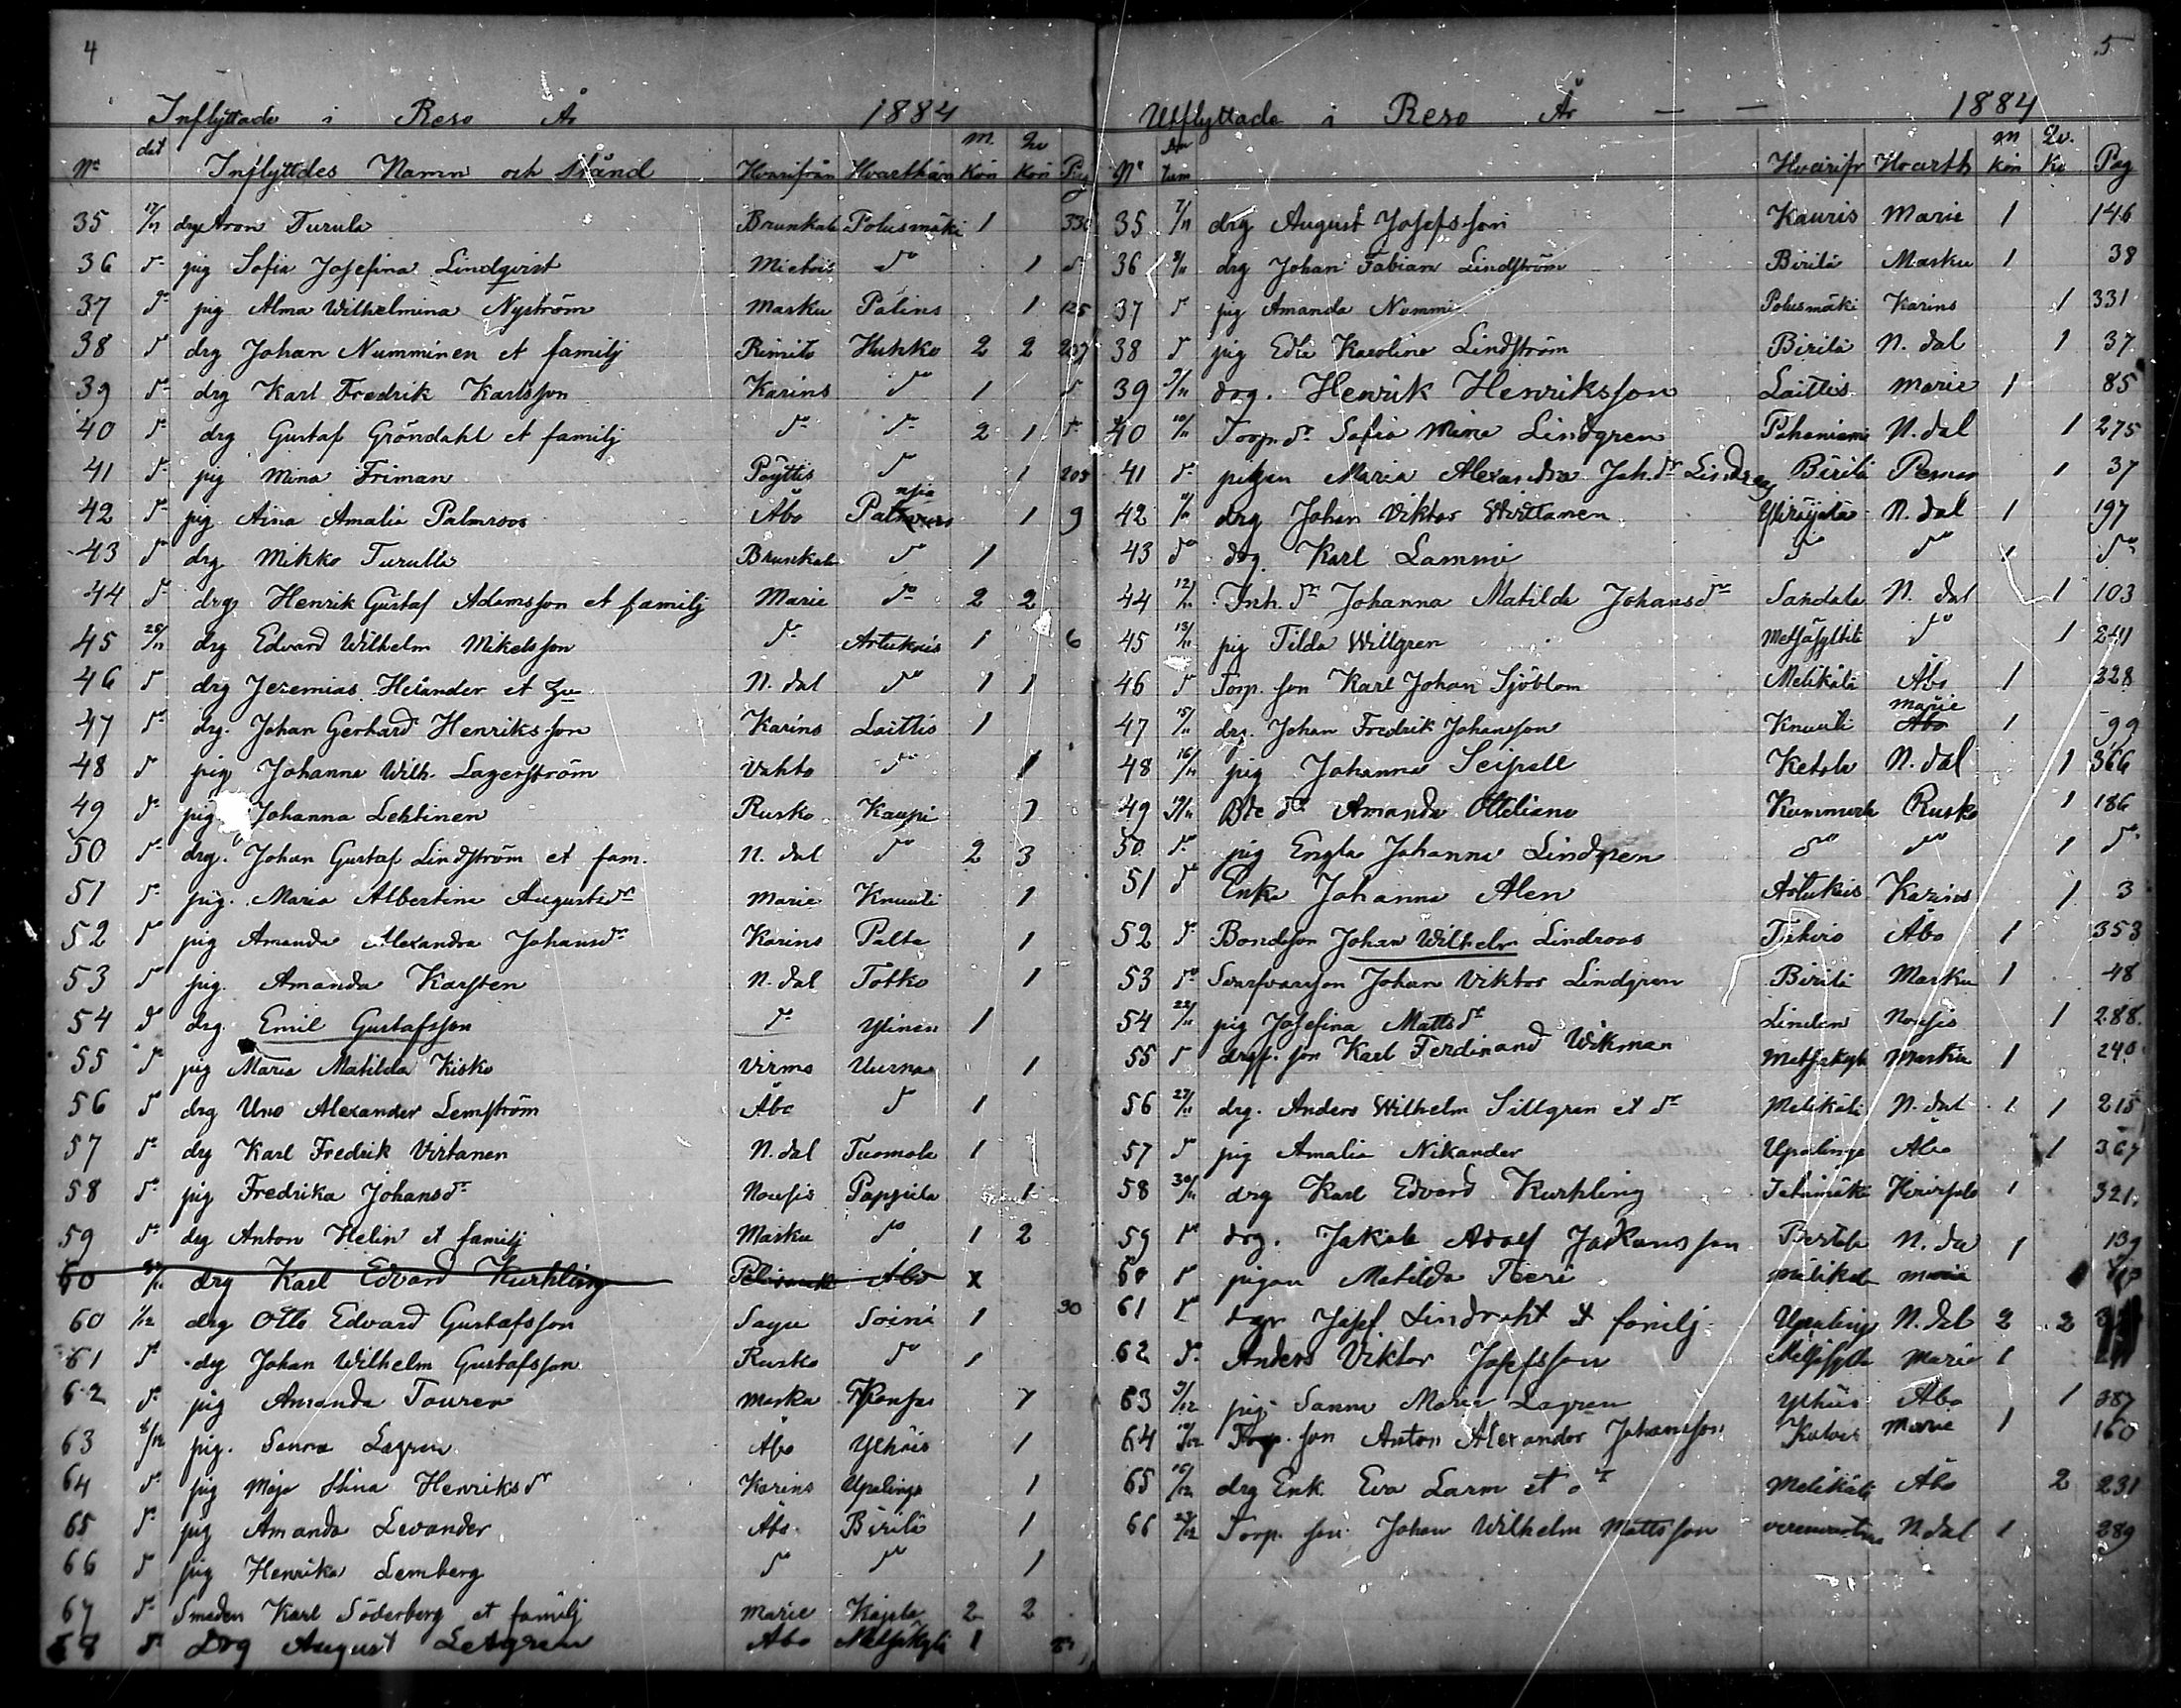 4
Inflyttade i Reso År 1884
No dat Inflyttdes Namn och Stånd Hvarifrån Hvarthän m. kön Qv kön Pag
35 17/11 drg Aron Turula Brunkala Polusmäki 1 330
36 do pig Sofia Josefina Lindqvist Mietois do 1 do
37 do pig Alma Wilhelmina Nyström Masku Palins 1 125
38 do drg Johan Numminen et familj Rimito Hukko 2 2 207
39 do drg Karl Fredrik Karlsson Karins do 1 do
40 do drg Gustaf Gröndahl et familj do do 2 1 do
41 do pig Mina Friman Pöyttis do 1 205
42 do pig Aina Amalia Palmroos Åbo 1 9
43 do drg Mikko Turulla Brunkala do 1
44 do drg Henrik Gustaf Adamsson et familj Marie do 2 2
45 26/11 drg Edvard Wilhelm Mikelsson do Artukais 1 6
46 do drg Jeremias Helander et hu N. dal do 1 1
47 do drg. Johan Gerhard Henriksson Karins Laittis 1
48 do pig Johanna Wilh. Lagerström Vahto do 1
49 do pig Johanna Lehtinen Rusko Kaupi 1
50 do drg. Johan Gustaf Lindström et fam. N. dal do 2 3
51 do pig. Maria Albertina Augustsdr Marie Knuuti 1
52 do pig Amanda Alexandra Johansdr Karins Palta 1
53 do pig. Amanda Karsten N. dal Totko 1
54 do drg. Emil Gustafsson do Ylinen 1
55 do pig Maria Matilda Kisko Virmo Uurna 1
56 do drg Uno Alexander Lemström Åbo do 1
57 do drg Karl Fredrik Virtanen N. dal Tuomola 1
58 do pig Fredrika Johansdr Nousis Pappila 1
59 do drg Anton Helin et familj Masku do 1 2
60 drg Karl Edvard Kurkling Åbo x
60 1/12 drg Otto Edvard Gustafsson Sagu Soini 1 30
61 do drg Johan Wilhelm Gustafsson Rusko do 1
62 do pig Amanda Touren Masku 1
63 8/12 pig. Sanna Lagren Åbo Ylhäis 1
64 do pig Maja Stina Henriksdr Karins Upalinge 1
65 do pig Amanda Levander Åbo Birilä 1
66 do pig Henrika Lemberg do do 1
67 do Smeden Karl Söderberg et familj Marie Kaijala 2 2
68 do Drg August Letgren Åbo Metsäkylä 1
5
Utflyttade i Reso År — — 1884
No Datum Hvarifr Hvarth m kön Qv. kö Pag
35 7/11 drg August Josefsson Kauris Marie 1 146
36 8/11 drg Johan Fabian Lindström Birilä Masku 1 38
37 do pig Amanda Nummi Polusmäki Karins 1 331
38 do pig Edla Karolina Lindström Birilä N. dal 1 37
39 9/11 drg. Henrik Henriksson Laittis Marie 1 85
40 10/11 Torp.dr Sofia Mina Lindgren Pahaniemi N. dal 1 275
41 do pigan Maria Alexandra Joh.dr Lindgren Birilä Pemar 1 37
42 11/11 drg Johan Viktor Wirttanen N. dal 1 197
43 do drg. Karl Lammi do do 1 do
44 12/11 Inh. dr Johanna Matilda Johansdr Sandala N. dal 1 103
45 13/11 pig Tilda Willgren do 1 241
46 do Torp. son Karl Johan Sjöblom Metikälä Åbo 1 328
47 15/11 drg. Johan Fredrik Johansson Knuuti Åbo Marie 1 99
48 16/11 pig Johanna Seipell Ketola N. dal 1 366
49 19/11 Bde dr Amanda Otteliana Rusko 1 186
50 do pig Engla Johanna Lindgren do do 1 do
51 do Enka Johanna Alen Artukais Karins 1 3
52 do Bondeson Johan Wilhelm Lindroos Åbo 1 353
53 do Svarfvarsson Johan Viktor Lindgren Birilä Masku 1 48
54 22/11 pig Josefina Mattsdr Linden Nousis 1 288
55 do son Karl Ferdinand Wikman Metsäkyla Masku 1 240
56 27/11 drg. Anders Wilhelm Sillgren et dr Metikälä N. dal 1 1 215
57 do pig Amalia Nikander Upalinge Åbo 1 367
58 30/11 drg Karl Edvard Kurkling 1 321
59 do drg. Jakob Adolf Jakansson N. dal 1 139
60 do pigan Matilda Tieri Metikälä Marie
61 do Josef Lindroht et familj Upalinge N. dal 2 2
62 do Anders Viktor Josefsson Marie 1
63 9/12 pig. Sanna Maria Lagren Ylhäis Åbo 1 387
64 10/12 Torp. son Anton Alexander Johansson Marie 1 160
65 16/12 drg Enk. Eva Larm et dr Metikälä Åbo 2 231
66 23/12 Torp. son Johan Wilhelm Mattsson N. dal 1 289